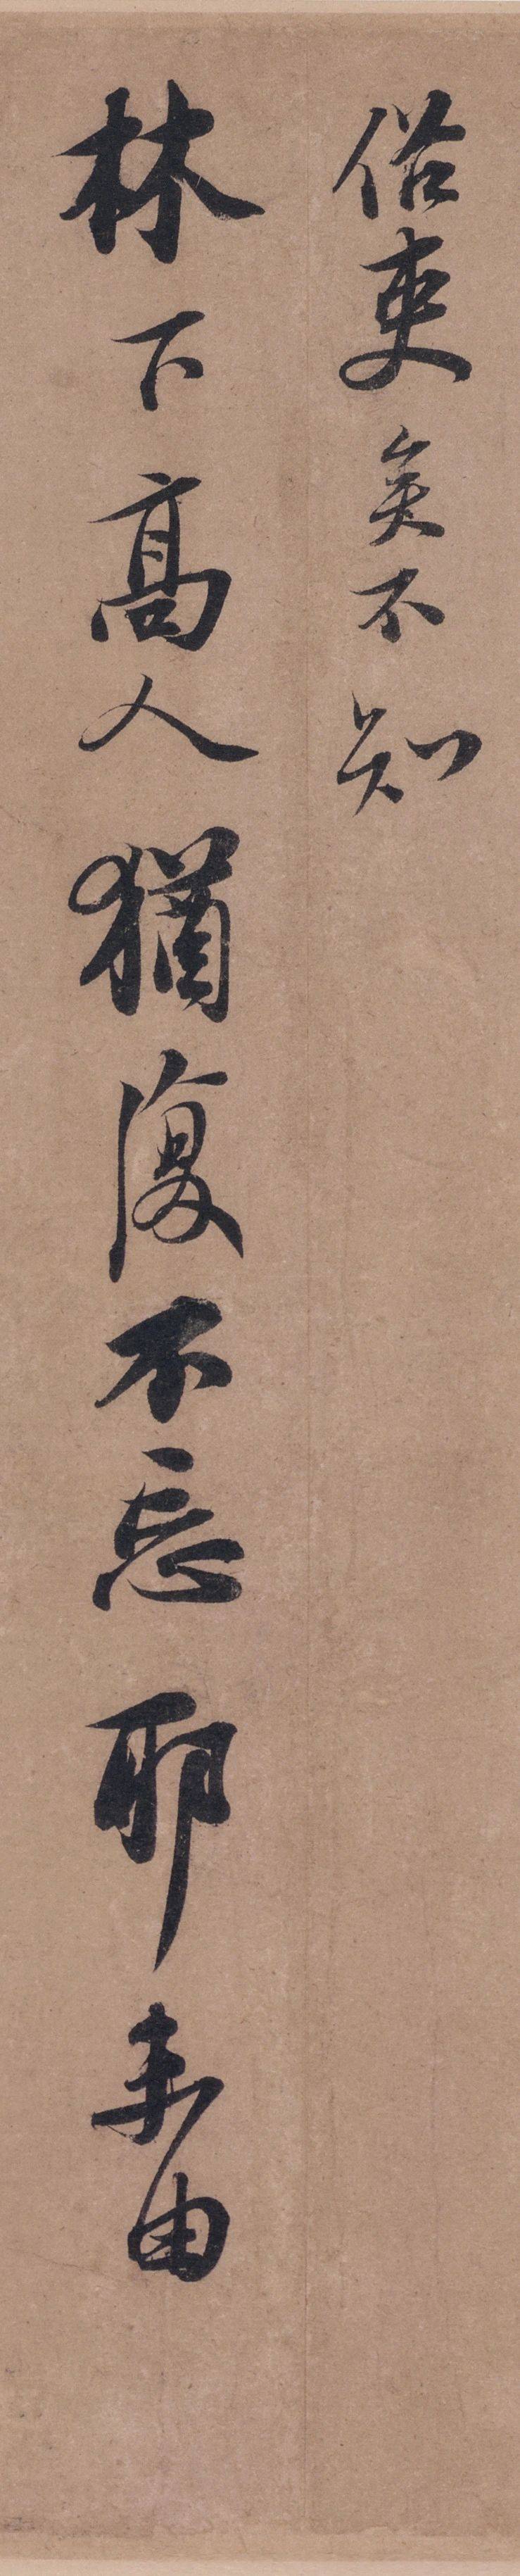 俗吏矣不知
林下高人猶復不忘耶未由